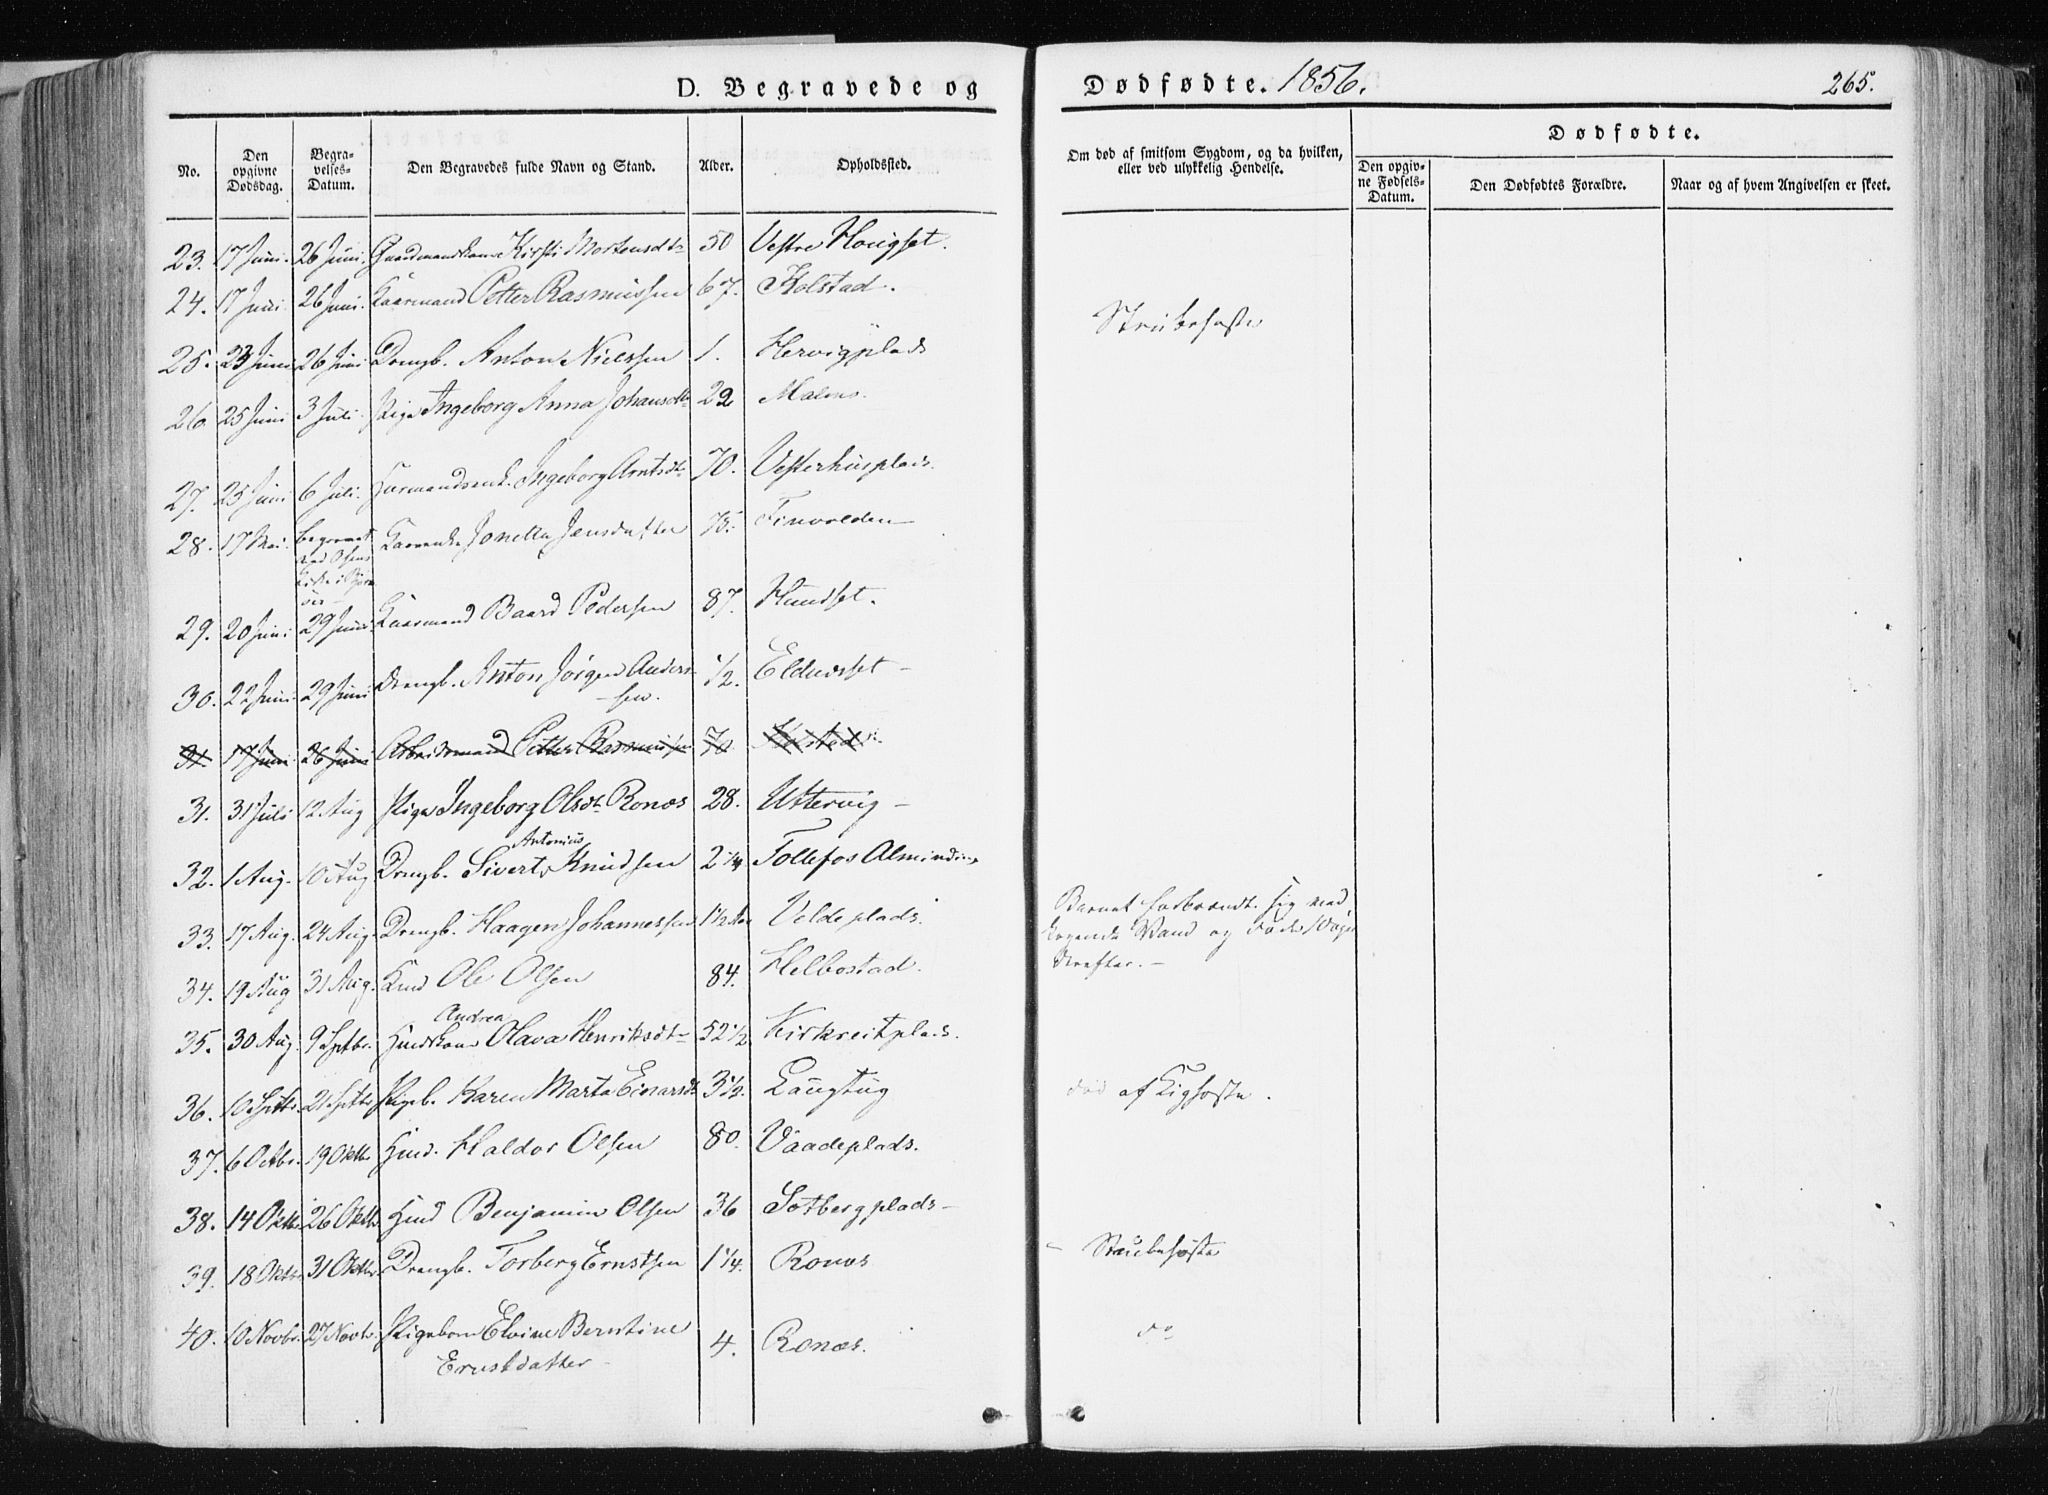 D. Begravede og Dødfødte. 1856. 265.
No. Den opgivne Dødsdag. Begravelses-Datum. Den Begravedes fulde Navn og Stand. Alder. Opholdssted. Om død af smitsom Sygdom, og da hvilken, eller ved ulykkelig Hendelse.
Dødfødte.
Den opgivne Fødsels-Datum. Den Dødfødtes Forældre. Naar og af hvem Angivelsen er skeet.
23. 17 Juni. 26 Juni. Gaardmandskone Kirsti Mortensdt 50 Vestre Hougset.
24. 17 Juni 26 Juni. Kaarmand Petter Rasmussen 67. Kolstad.
25. 23 Juni 26 Juni Drengb. Anton Nielssen 1. Hervigplads Strubehoste
26. 25 Juni 3 Juli Pige Ingeborg Anna Johansdt 22 Malenes
27. 25 Juni 6 Juli. Ingeborg Arntsdt 70. Vesterhusplads.
28. 17 Mai. Begravet ved Osens Kirke i Bjørnør Kaarenke Jonetta Jensdatter 75. Finvolden
29. 20 Juni 29 Juni Kaarmand Baard Pedersen 87. Hundset.
30. 22 Juni 29 Juni Drengb. Anton Jørgen Anderssen. 1/2. Eldnesset
31. 17 Juni 26 Juni Arbeidsmand Petter Rasmussen 70 Kolstad
31. 31 Juli 12 Aug Pige Ingeborg Olsdt Ronæs 28. Uttervig
32. 1 Aug. 10 Aug Drengb. Sivert Antonius Knudsen 2 1/4 Tollefos Alminding
33. 17 Aug. 24 Aug. Drengb. Haagen Johannessen 1 1/2 Aar Veldeplads. Barnet forbrændt sig med kogende Vand og døde 1 Døgn derefter.
34. 19 Aug 31 Aug. Ole Olsen 84. Helbostad.
35. 30 Aug. 9 Septbr. Huskone Andrea Olava Henriksdt 52 1/2 Kirkreitplads.
36. 10 Septbr. 21 Septbr Pigeb. Karen Marta Einarsdt 3 1/2. Laugtug død af Kighoste.
37. 6 Octbr. 19 Oktbr Hmd. Haldor Olsen 80. Vaadeplads.
38. 14 Oktbr. 26 Oktbr. Hmd Benjamin Olsen 36 Solbergplads
39. 18 Oktbr. 31 Oktbr. Drengb. Torberg Ernstsen 1 1/4. Ronæs Strubehoste
40. 10 Novbr. 27 Novbr. Pigebarn Elvine Berntine Ernstdatter 4. Ronæs. do